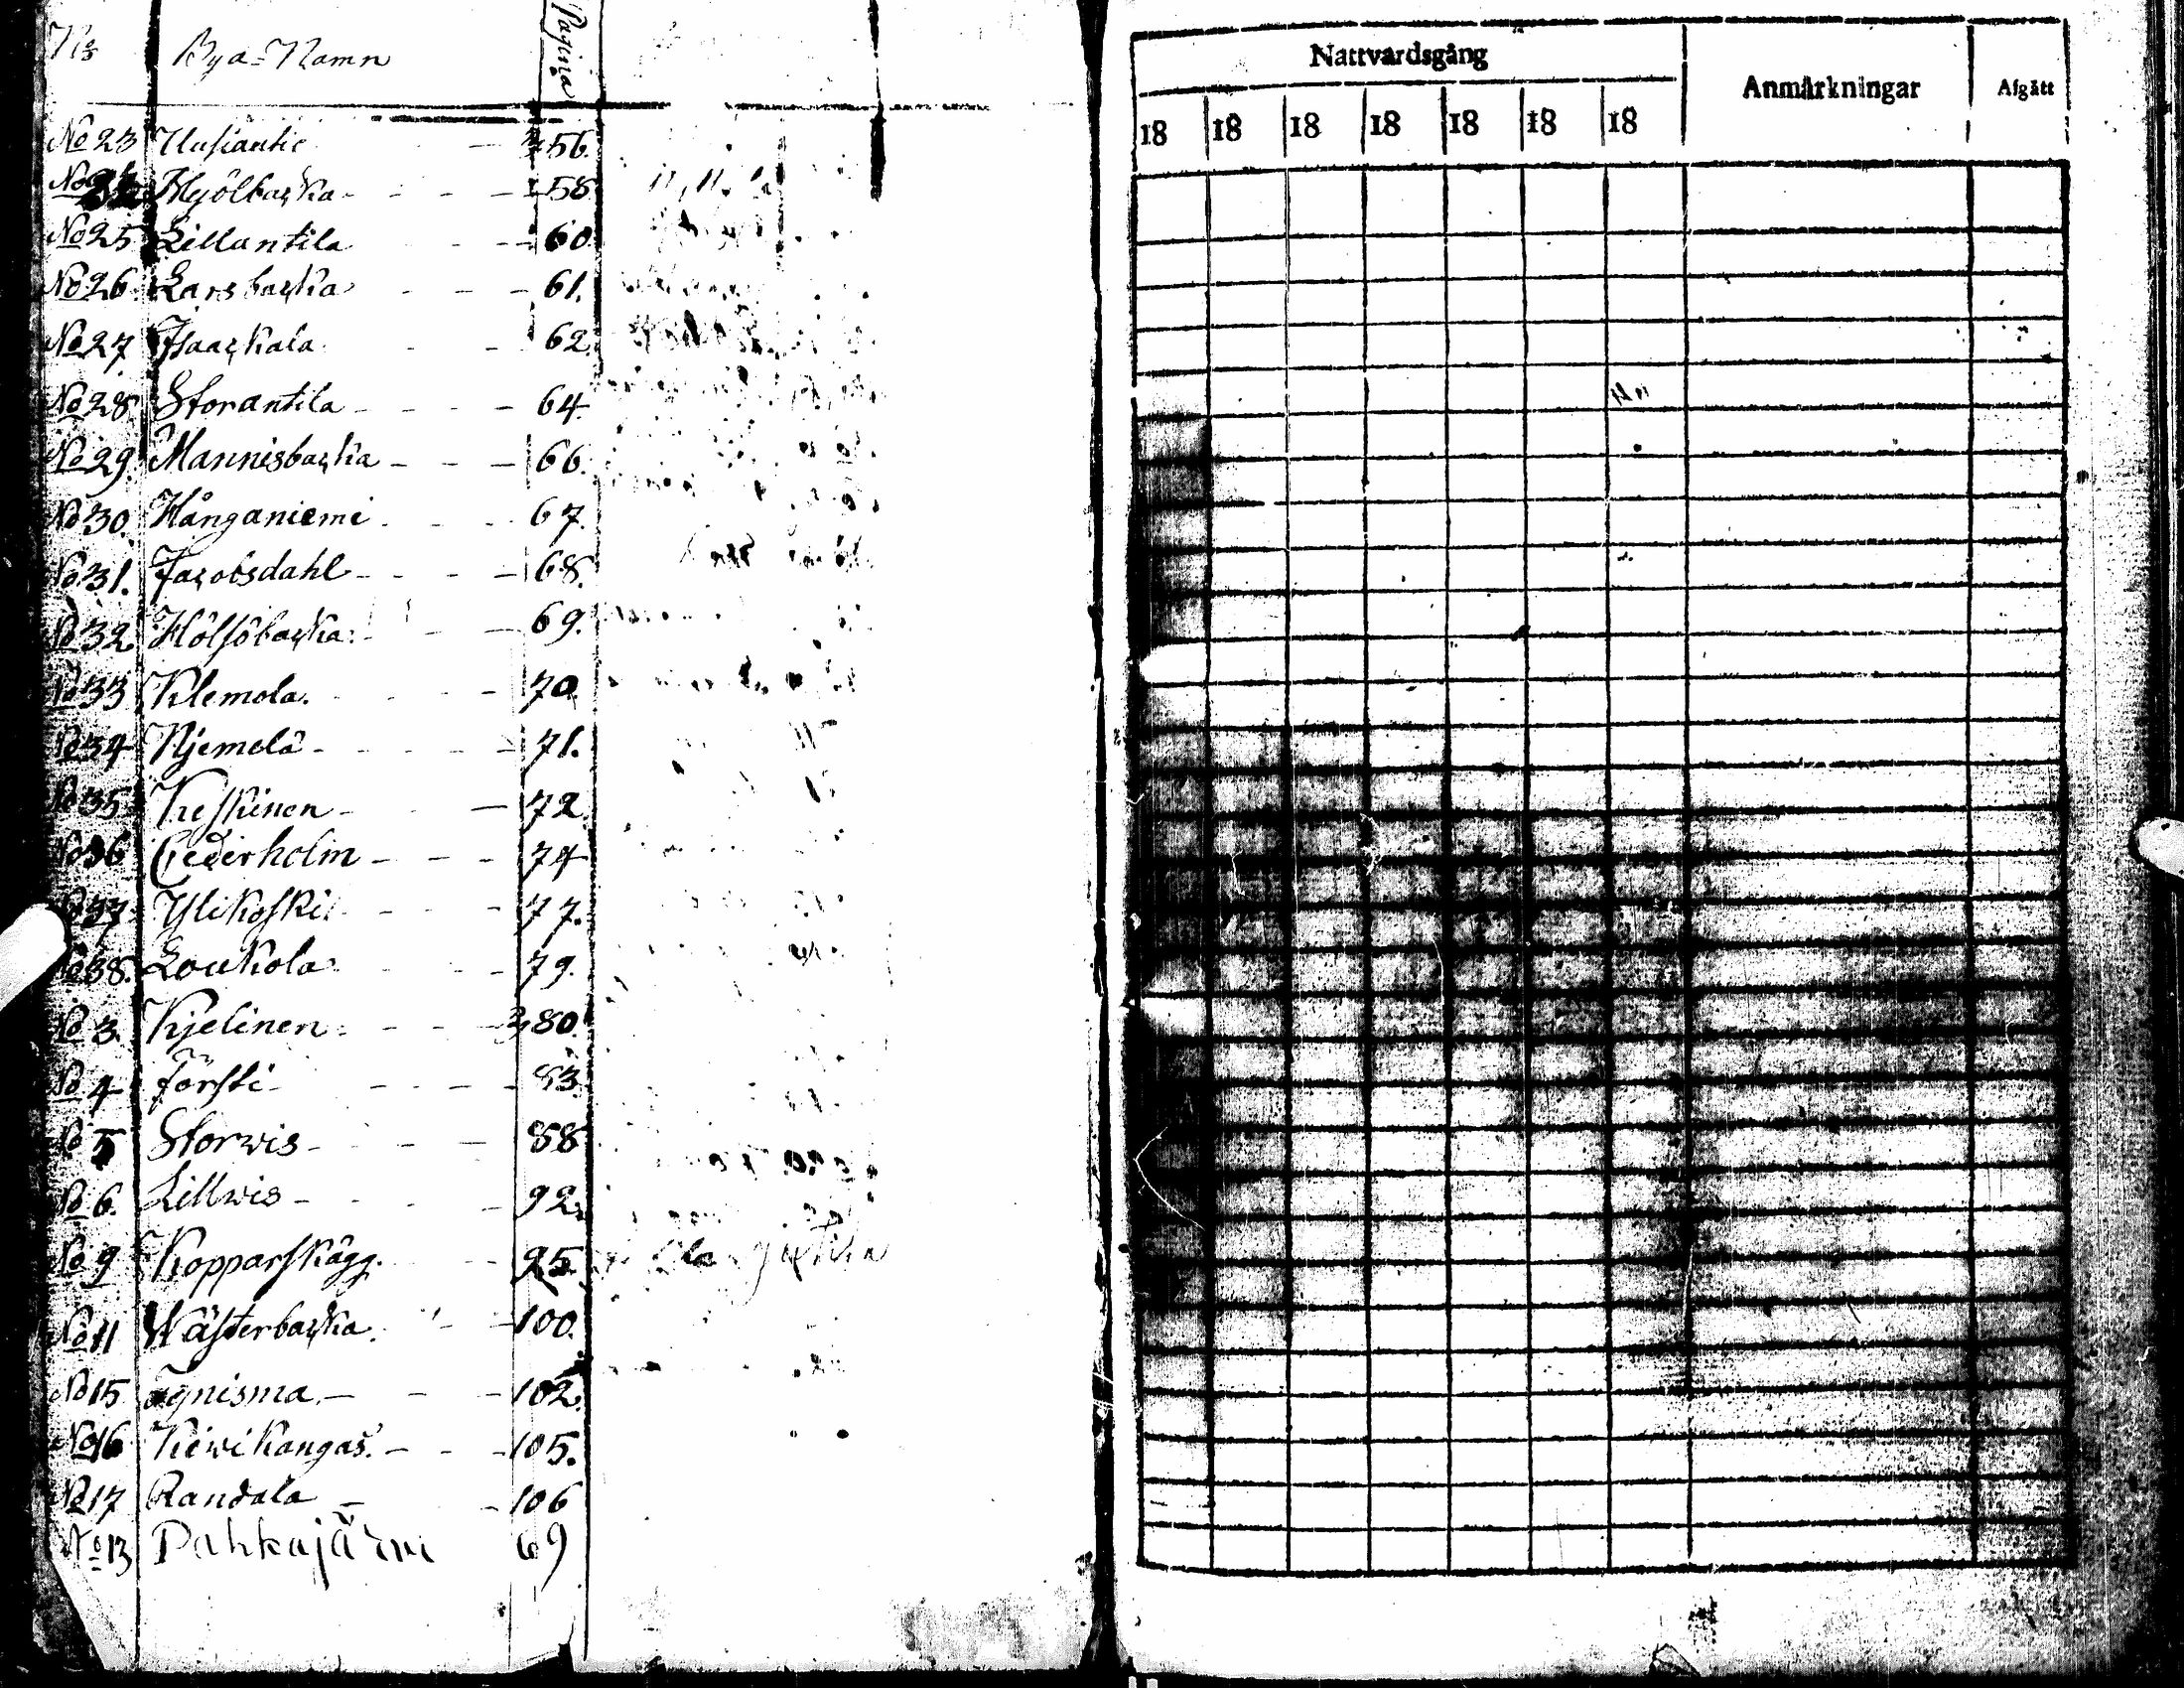 No Bya-Namn Pagina
No 23 Uusiantti - 56.
No 24 Mjölbacka - - - - 58
No 25 Lillantila - - 60
No 26 Larsbacka - - - 61.
No 27 Isaackala - - 62.
No 28 Storantila - - - - 64
No 29. Mannisbacka - - - 66.
No 30. Hånganiemi - - - 67.
No 31. Jacobsdahl - - - - 68.
No 32 Hölsöbacka - - 69.
No 33 Klemola. - - - 70
No 34 Njemelä - - - - 71.
No 35 Keskinen - - 72
No 36 Cederholm - - - 74
No 37 Ylikoski - - - 77.
No 38. Loukola - - - 79.
No 3. Kjelinen - - - 380.
No 4 Försti - - - - 83.
No 5 Storwis - - - 88
No 6. Lillwis - - - 92.
No 9 Kopparskägg. - - 95
No 11 Wästerbacka. - - 100.
No 15 Ögnisma. - - - 102.
No 16 Kiwikangas. - - - 105.
No 17 Randala - - 106
No 13 Pahkajärwi 69
Nattvardsgång Anmärkningar Afgått
18 18 18 18 18 18 18